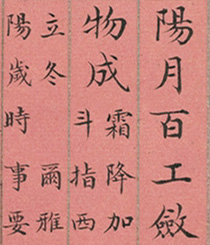 陽月百工斂
物成
霜降加
斗指西
立冬 爾雅
陽歲時事要